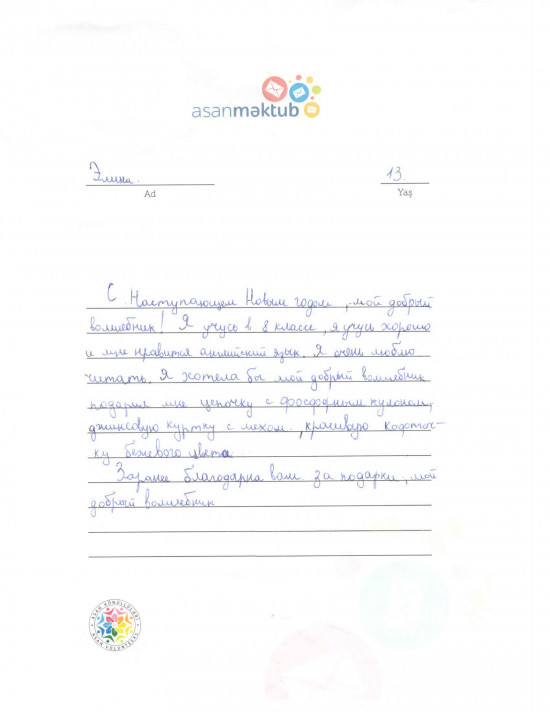 asanməktub
Элина. 13.
Ad Yaş
С Наступающем Новым годом, мой добрый
волшебник! Я учусь в 8 классе, я учусь хорошо
и мне нравится английский язык. Я очень люблю
читать. Я хотела бы мой добрый волшебник
подарил мне цепочку с фосфорным кулоном,
джинсовую куртку с мехом, красивую кофточ-
ку бежевого цвета.
Заранее благодарна вам за подарки, мой
добрый волшебник
ASAN KÖNÜLLÜLƏRİ
ASAN VOLUNTEERS